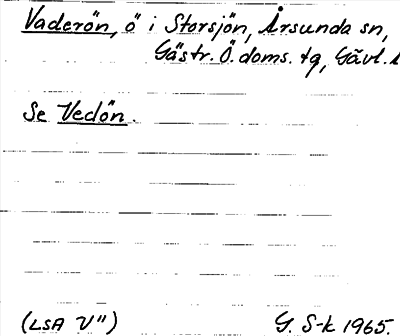 Vaderön, ö i Storsjön, Årsunda sn,
Gästr. Ö. doms. tg, Gävl. l
Se Vedön.
(LSA V")
G. S-k 1965.